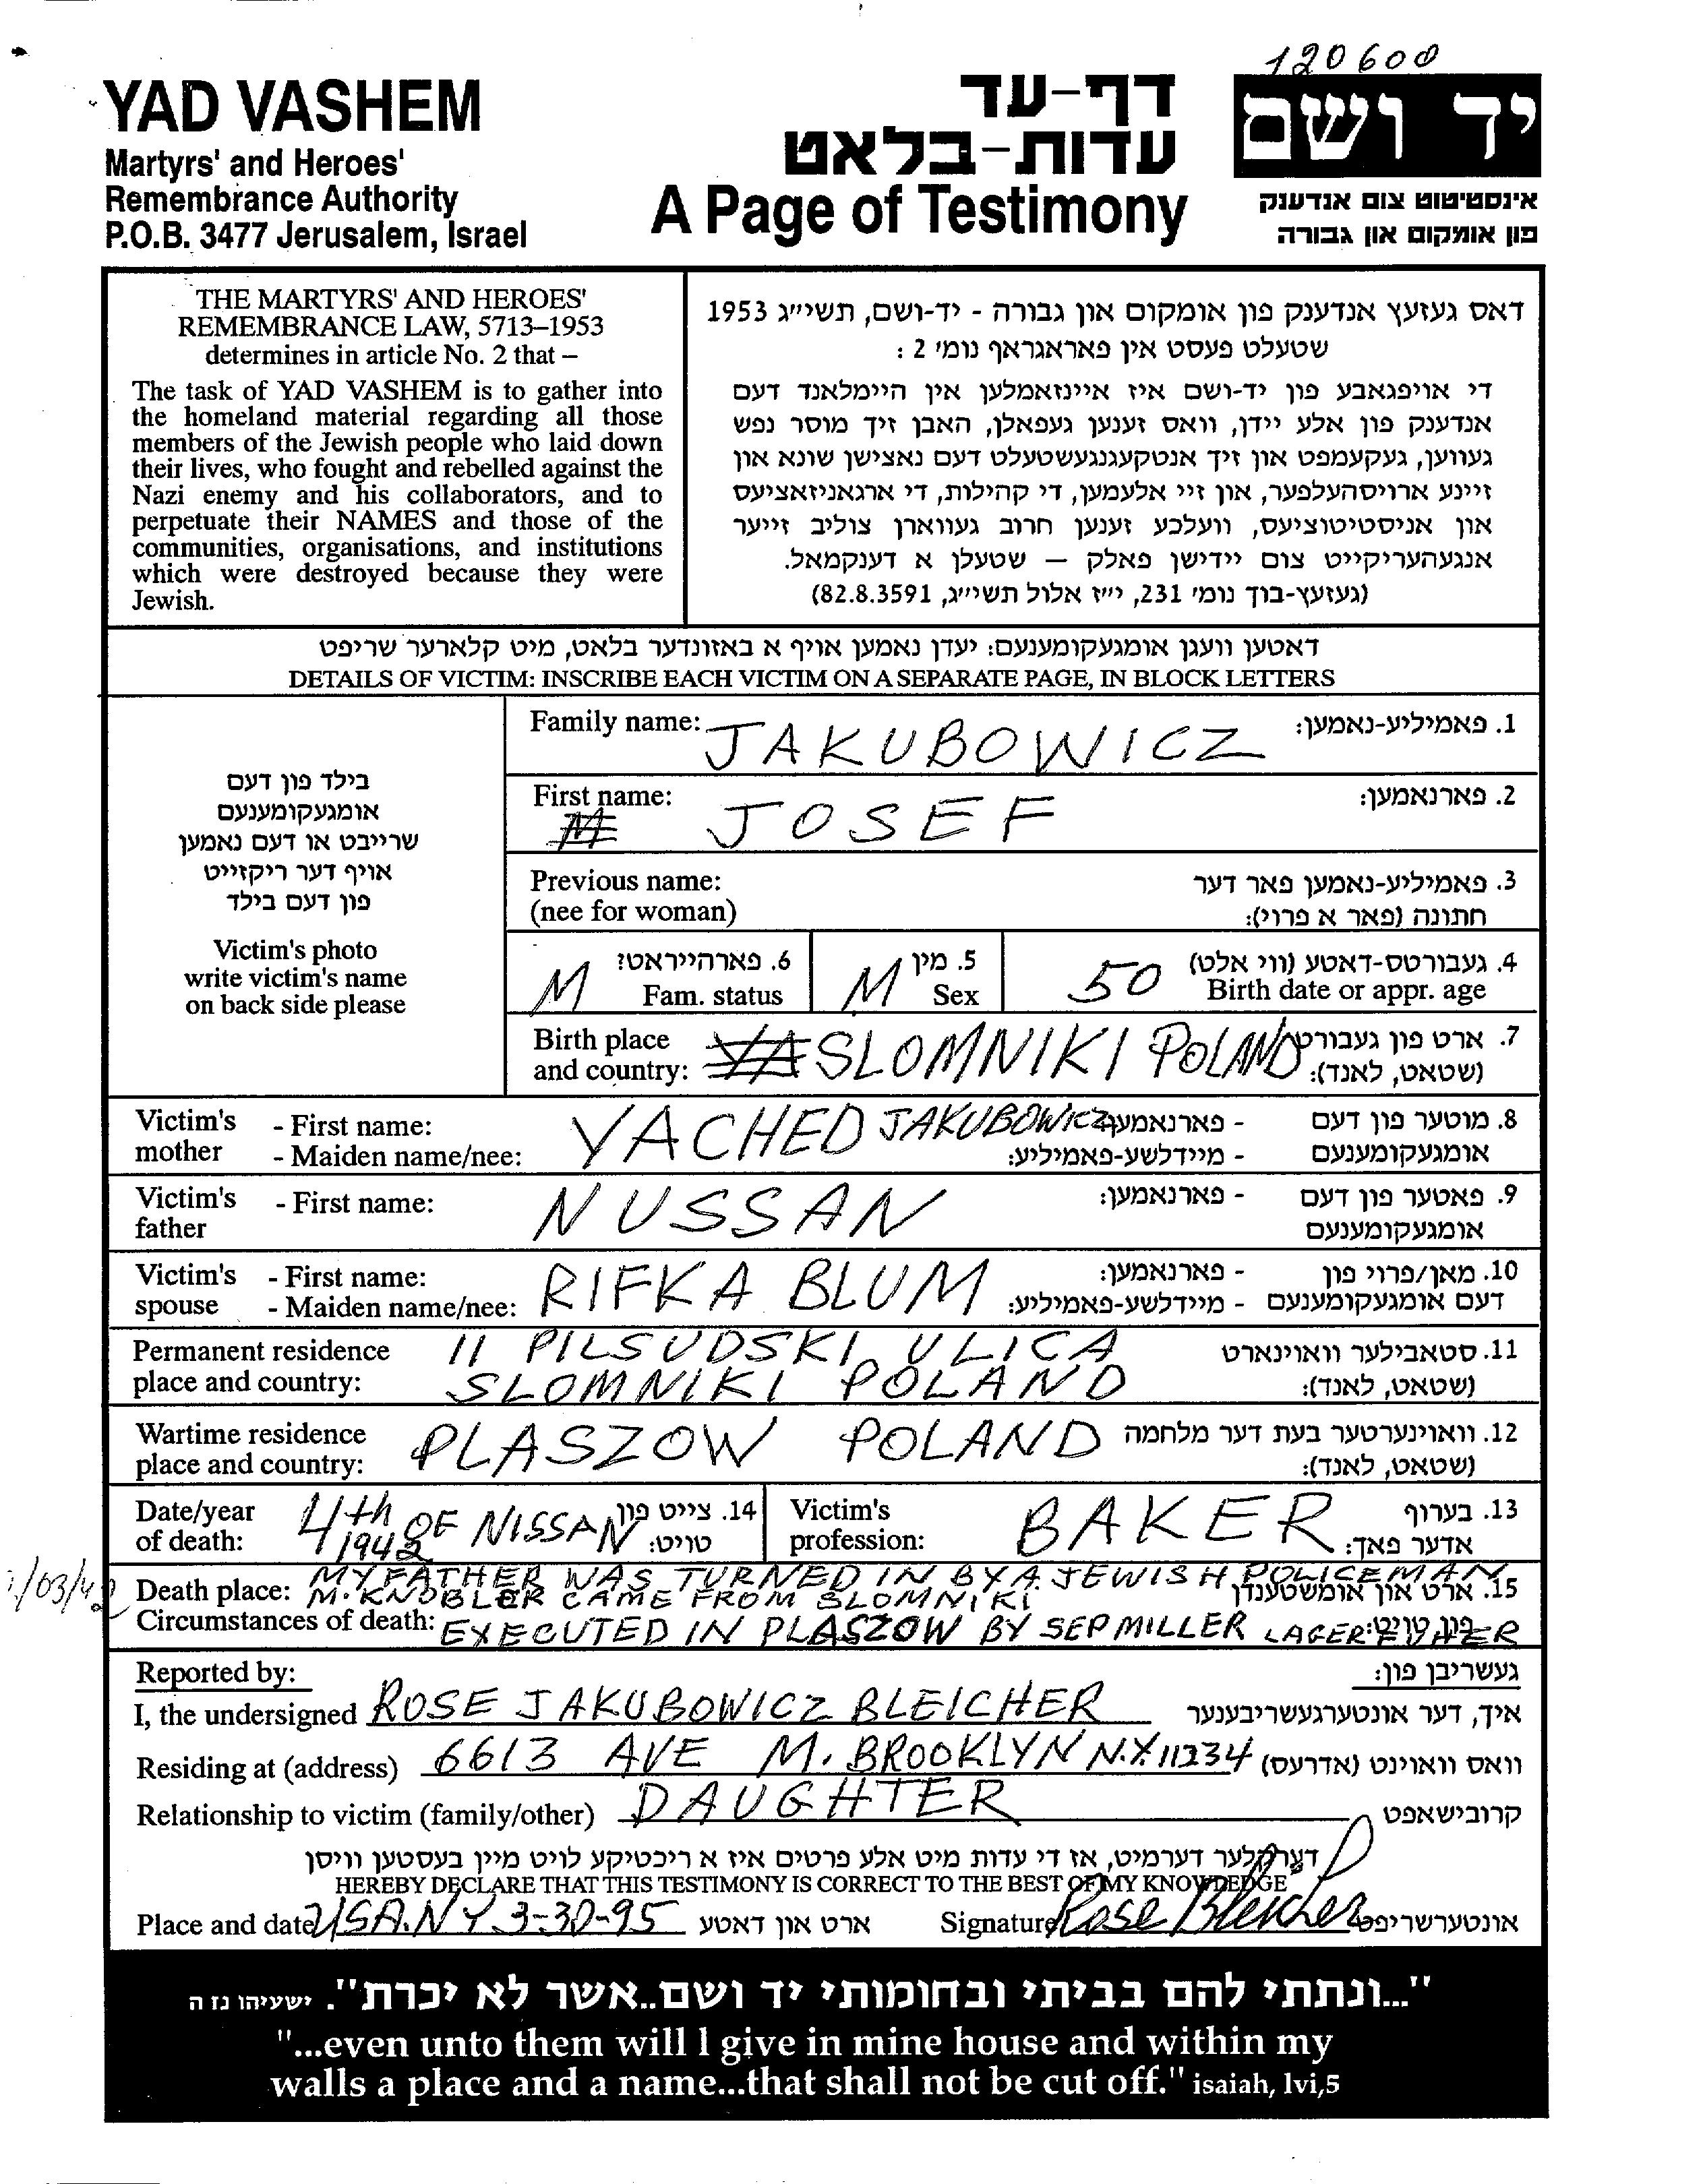 120600
YAD VASHEM
Martyrs' and Heroes'
Remembrance Authority
P.O.B. 3477 Jerusalem, Israel
דף-עד
עדות-בלאט
A Page of Testimony
יד ושם
אינסטיטוט צום אנדענק
פון אומקום און גבורה
THE MARTYRS' AND HEROES'
REMEMBRANCE LAW, 5713–1953
determines in article No. 2 that –
The task of YAD VASHEM is to gather into
the homeland material regarding all those
members of the Jewish people who laid down
their lives, who fought and rebelled against the
Nazi enemy and his collaborators, and to
perpetuate their NAMES and those of the
communities, organisations, and institutions
which were destroyed because they were
Jewish.
דאס געזעץ אנדענק פון אומקום און גבורה - יד-ושם, תשי״ג 1953
שטעלט פעסט אין פאראגראף נומ׳ 2 :
די אויפגאבע פון יד-ושם איז איינזאמלען אין היימלאנד דעם
אנדענק פון אלע יידן, וואס זענען געפאלן, האבן זיך מוסר נפש
געווען, געקעמפט און זיך אנטקעגנגעשטעלט דעם נאצישן שונא און
זיינע ארויסהעלפער, און זיי אלעמען, די קהילות, די ארגאניזאציעס
און אניסטיטוציעס, וועלכע זענען חרוב געווארן צוליב זייער
אנגעהעריקייט צום יידישן פאלק — שטעלן א דענקמאל.
(געזעץ-בוך נומ׳ 231, י״ז אלול תשי״ג, 82.8.3591)
דאטען וועגן אומגעקומענעם: יעדן נאמען אויף א באזונדער בלאט, מיט קלארער שריפט
DETAILS OF VICTIM: INSCRIBE EACH VICTIM ON A SEPARATE PAGE, IN BLOCK LETTERS
בילד פון דעם
אומגעקומענעם
שרייבט או דעם נאמען
אויף דער ריקזייט
פון דעם בילד
Victim's photo
write victim's name
on back side please
Family name: JAKUBOWICZ 1. פאמיליע-נאמען:
First name: JOSEF 2. פארנאמען:
Previous name: 3. פאמיליע-נאמען פאר דער
(nee for woman) חתונה (פאר א פרוי):
M 6. פארהייראט? M 5. מין 50 4. געבורטס-דאטע (ווי אלט)
Fam. status Sex Birth date or appr. age
Birth place SLOMNIKI POLAND 7. ארט פון געבורט
and country: (שטאט, לאנד):
Victim's - First name: YACHED JAKUBOWICZ - פארנאמען 8. מוטער פון דעם
mother - Maiden name/nee: - מיידלשע-פאמיליע: אומגעקומענעם
Victim's - First name: NUSSAN - פארנאמען: 9. פאטער פון דעם
father אומגעקומענעם
Victim's - First name: RIFKA BLUM - פארנאמען: 10. מאן/פרוי פון
spouse - Maiden name/nee: - מיידלשע-פאמיליע: דעם אומגעקומענעם
Permanent residence 11 PILSUDSKI ULICA 11. סטאבילער וואוינארט
place and country: SLOMNIKI POLAND (שטאט, לאנד):
Wartime residence PLASZOW POLAND 12. וואוינערטער בעת דער מלחמה
place and country: (שטאט, לאנד):
Date/year 4th OF NISSAN 14. צייט פון Victim's BAKER 13. בערוף
of death: 1942 טויט: profession: אדער פאך:
/03/42
Death place: MY FATHER WAS TURNED IN BY A JEWISH POLICEMAN
M. KNOBLER CAME FROM SLOMNIKI 15. ארט און אומשטענדן
Circumstances of death: EXECUTED IN PLASZOW BY SEPMILLER פון טויט:
Reported by: געשריבן פון:
I, the undersigned ROSE JAKUBOWICZ BLEICHER איך, דער אונטערגעשריבענער
Residing at (address) 6613 AVE M. BROOKLYN N.Y. 11234 וואס וואוינט (אדרעס)
Relationship to victim (family/other) DAUGHTER קרובישאפט
דערקלער דערמיט, אז די עדות מיט אלע פרטים איז א ריכטיקע לויט מיין בעסטען וויסן
HEREBY DECLARE THAT THIS TESTIMONY IS CORRECT TO THE BEST OF MY KNOWLEDGE
Place and date USA. N Y 3-30-95 ארט און דאטע Signature Rose Bleicher אונטערשריפט
"...ונתתי להם בביתי ובחומותי יד ושם..אשר לא יכרת". ישעיהו נז ה
"...even unto them will I give in mine house and within my
walls a place and a name...that shall not be cut off." isaiah, lvi,5